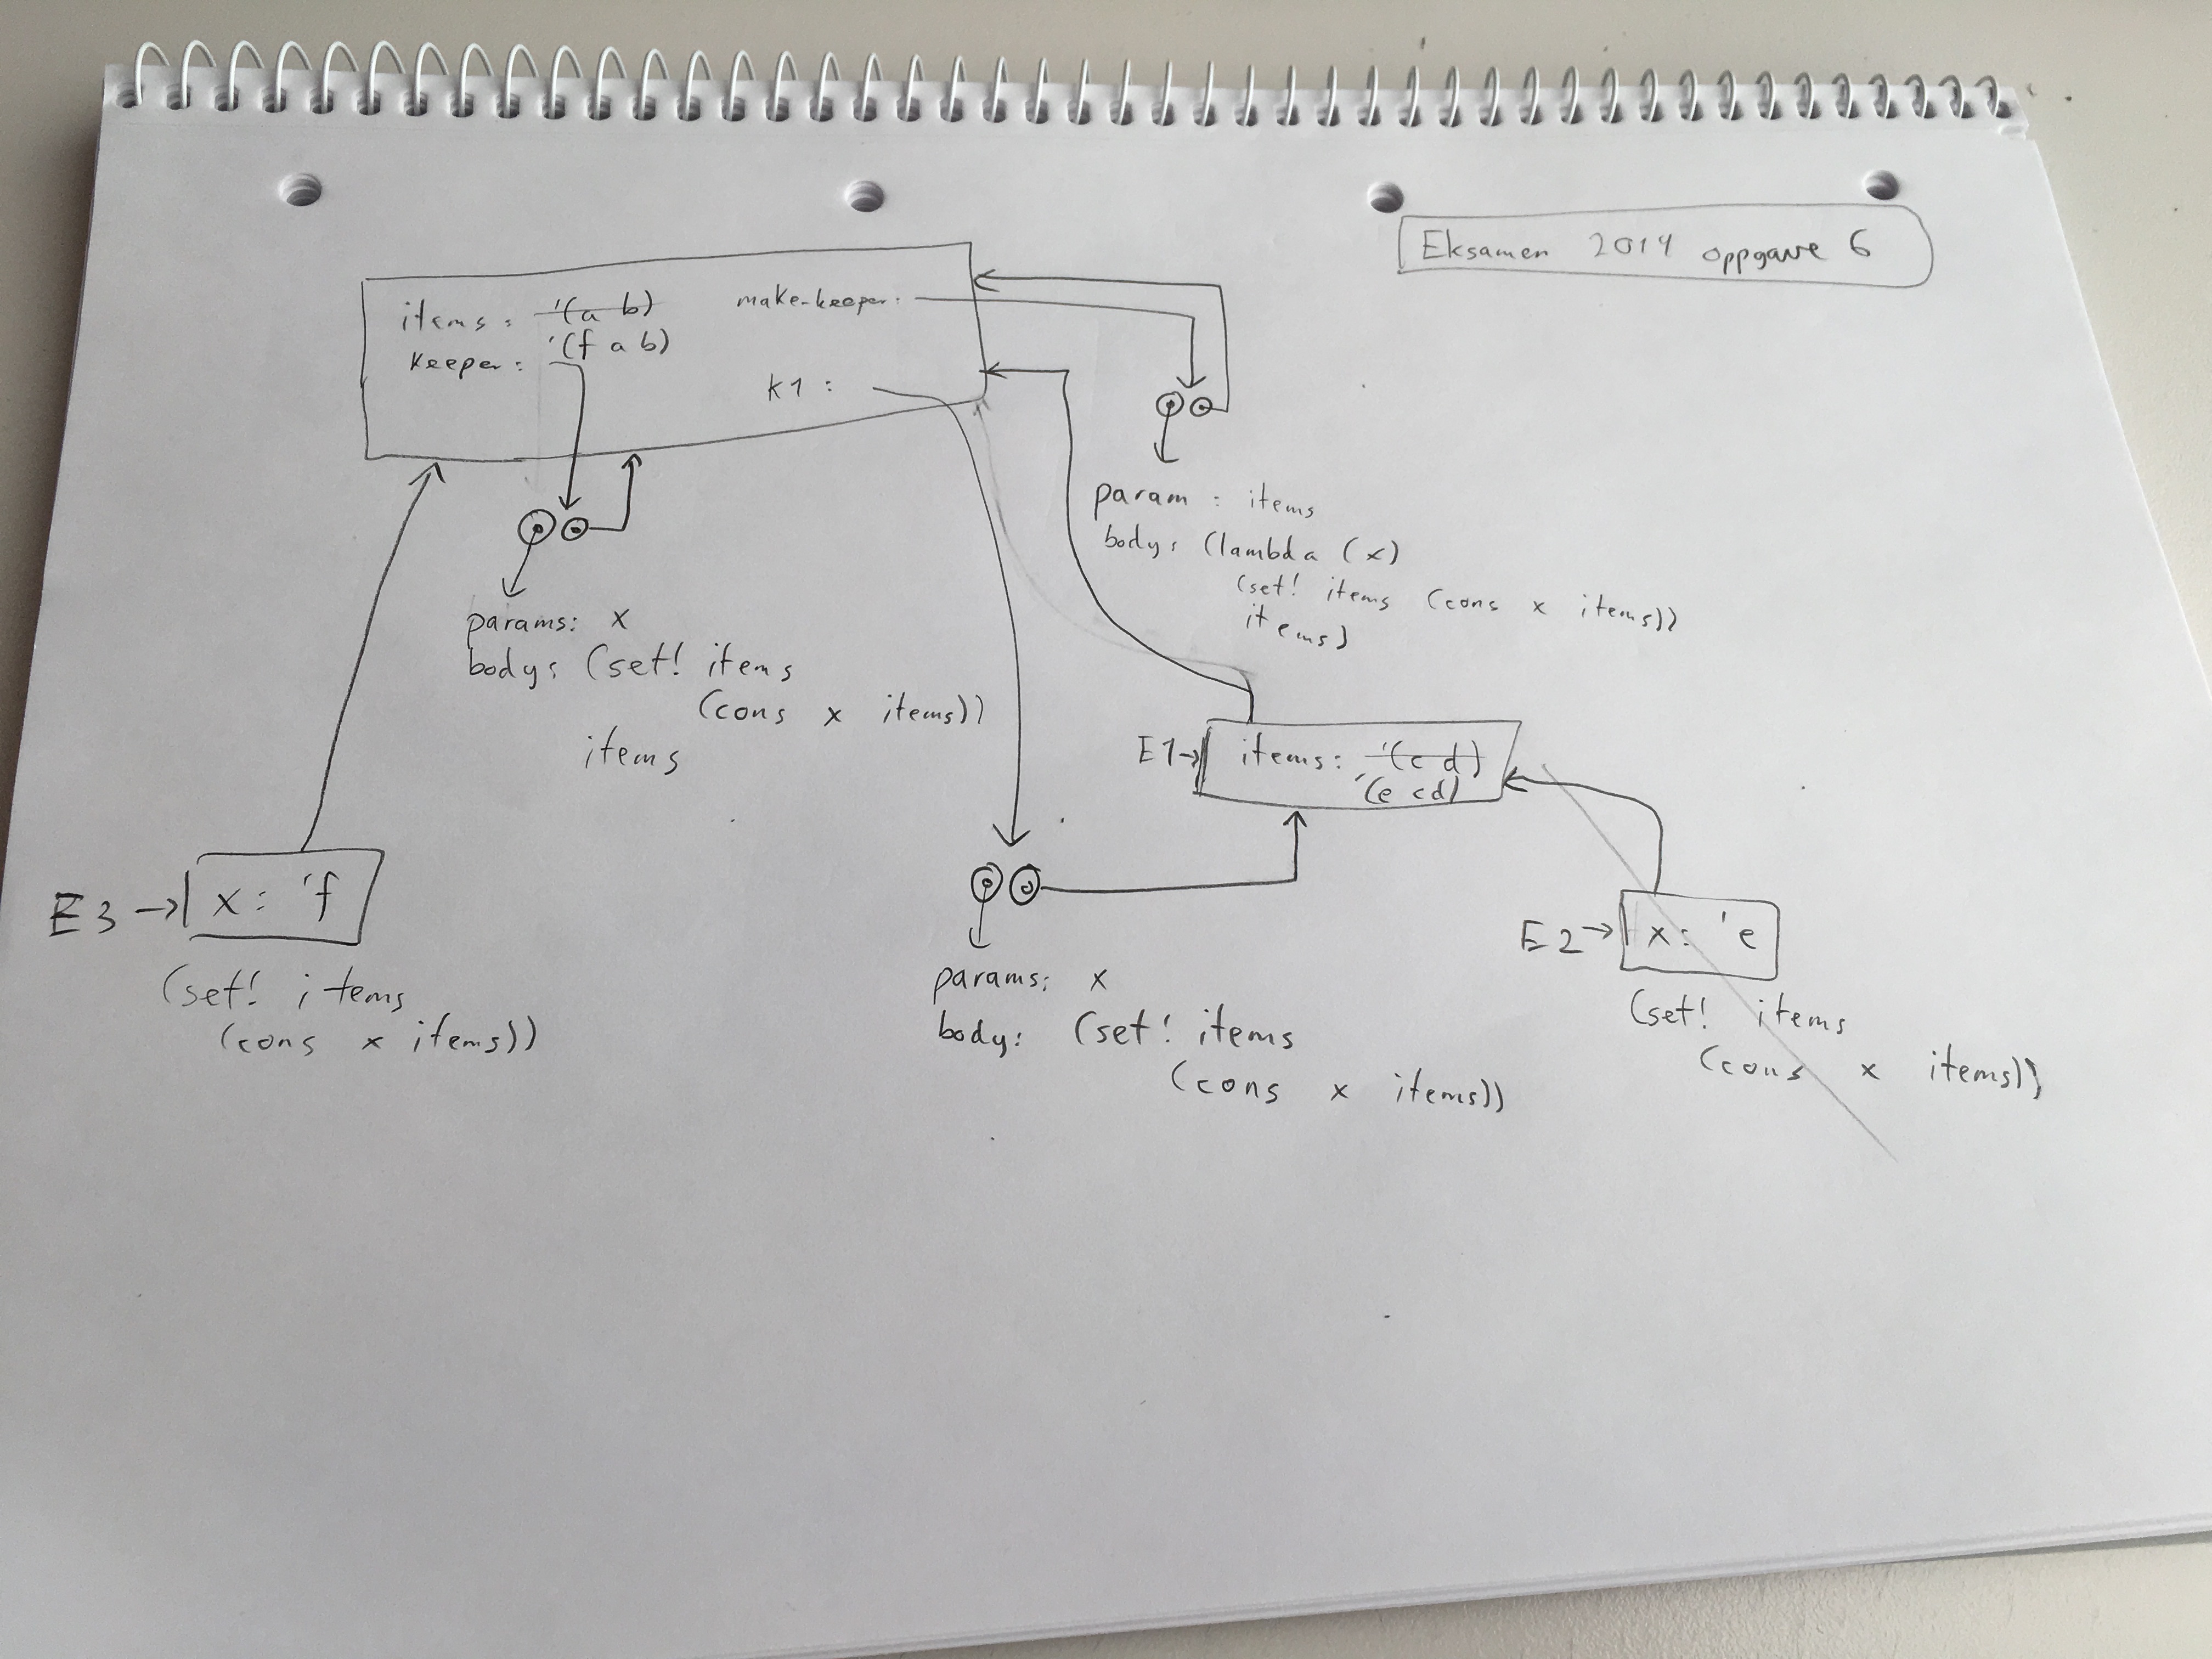 Eksamen 2014 oppgave 6
items: '(a b)
'(f a b)
keeper:
make-keeper:
k1:
param: items
body: (lambda (x)
(set! items (cons x items))
items)
params: x
body: (set! items
(cons x items))
items
E1→ items: '(c d)
'(e c d)
E3→ x: 'f
(set! items
(cons x items))
params: x
body: (set! items
(cons x items))
E2→ x: 'e
(set! items
(cons x items))